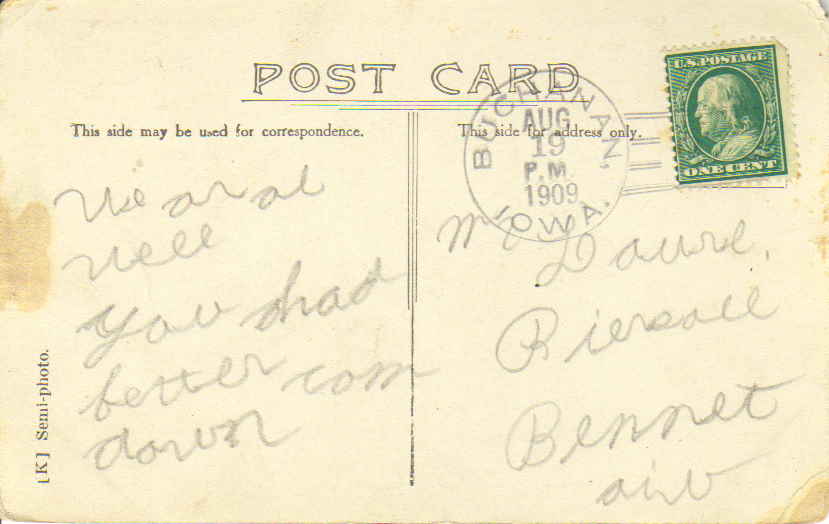 POST CARD
This side may be used for correspondence.
This side for address only.
U.S. POSTAGE
ONE CENT
BUCHANAN, IOWA.
AUG
19
P.M.
1909
We ar al
well
you had
better com
down
Bennet
[K] Semi-photo.